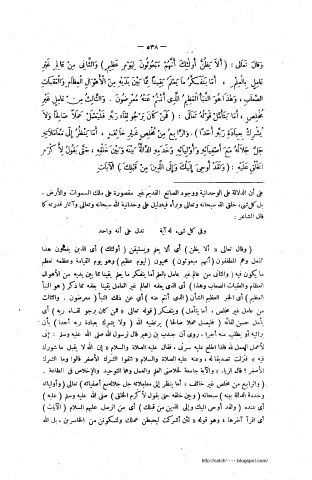 — ٥٣٨ —
وَقَالَ تَعَالَى : ( أَلَا يَظُنُّ أُولَئِكَ أَنَّهُمْ مَبْعُوثُونَ لِيَوْمٍ عَظِيمٍ ) وَالثَّانِي مِنْ عَالِمٍ غَيْرِ
عَامِلٍ بِالْعِلْمِ ، أَمَا يَتَفَكَّرُ مَا يَعْلَمُ يَقِينًا مِمَّا بَيْنَ يَدَيْهِ مِنَ الْأَهْوَالِ الْعِظَامِ وَالْعَقَبَاتِ
الصِّعَابِ ، وَهَذَا هُوَ النَّبَأُ الْعَظِيمُ الَّذِي أَنْتُمْ عَنْهُ مُعْرِضُونَ . وَالثَّالِثُ مِنْ عَامِلٍ غَيْرِ
مُخْلِصٍ ، أَمَا يَتَأَمَّلُ قَوْلَهُ تَعَالَى : ( فَمَنْ كَانَ يَرْجُو لِقَاءَ رَبِّهِ فَلْيَعْمَلْ عَمَلًا صَالِحًا وَلَا
يُشْرِكْ بِعِبَادَةِ رَبِّهِ أَحَدًا ) . وَالرَّابِعُ مِنْ مُخْلِصٍ غَيْرِ خَائِفٍ ، أَمَا يَنْظُرُ إِلَى مُعَامَلَاتِهِ
جَلَّ جَلَالُهُ مَعَ أَصْفِيَائِهِ وَأَوْلِيَائِهِ وَخَدَمِهِ الدَّالَّةِ بَيْنَهُ وَبَيْنَ خَلْقِهِ ، حَتَّى يَقُولَ لِأَكْرَمِ
الْخَلْقِ عَلَيْهِ : ( وَلَقَدْ أُوحِيَ إِلَيْكَ وَإِلَى الَّذِينَ مِنْ قَبْلِكَ ) الْآيَاتِ
على أن الدلالة على الوحدانية ووجود الصانع القديم غير مقصورة على ملك السموات والأرض ،
بل كل شيء خلقه الله سبحانه وتعالى وبرأه فيه دليل على وحدانية الله سبحانه وتعالى وآثار قدرته كما
قال الشاعر :
وفي كل شيء له آية تدل على أنه واحد
( وقال تعالى « ألا يظن ) أى ألا يعلم ويستيقن ( أولئك ) أى الذين
( أنهم مبعوثون ) محيون ( ليوم عظيم ) وهو يوم القيامة وعظمه لعظم
ما يكون فيه ( والثانى من عالم غير عامل بالعلم أما يتفكر ما يعلم يقينا مما بين يديه من الأهوال
العظام والعقبات الصعاب وهذا ) أى الذى يعلمه العالم غير العامل يقينا
العظيم ) أى الخبر العظيم الشأن ( الذى أنتم عنه ) أى عن ذلك النبأ ( معرضون . والثالث
من عامل غير مخلص ، أما يتأمل ) ويتفكر ( قوله تعالى « فمن كان يرجو لقاء ربه ) أى
يأمل حسن لقائه ( فليعمل عملا صالحا ) يرتضيه الله ( ولا يشرك بعبادة ربه أحدا ) بأن
يرائيه أو يطلب منه أجرا . روى أن جندب بن زهير قال لرسول الله صلى الله عليه وسلم : إنى
لأعمل العمل لله فإذا اطلع عليه سرنى ، فقال عليه الصلاة والسلام : إن الله لا يقبل ما شورك
فيه ، فنزلت تصديقا له ، وعنه عليه الصلاة والسلام « اتقوا الشرك الأصغر قالوا وما الشرك
الأصغر ؟ قال الرياء . والآية جامعة لخلاصتى العلم والعمل وهما التوحيد والإخلاص فى الطاعة .
( والرابع من مخلص غير خائف ، أما ينظر إلى معاملاته جل جلاله مع أصفيائه ) تعالى ( وأوليائه
وخدمه الدالة بينه ) سبحانه ( وبين خلقه حتى يقول لأكرم الخلق ) صلى الله عليه وسلم ( عليه )
أى عنده ( ولقد أوحى إليك وإلى الذين من قبلك ) أى من الرسل عليهم السلام ( الآيات )
أى اقرأ آخرها ، وهو قوله « لئن أشركت ليحبطن عملك ولتكونن من الخاسرين ، بل الله